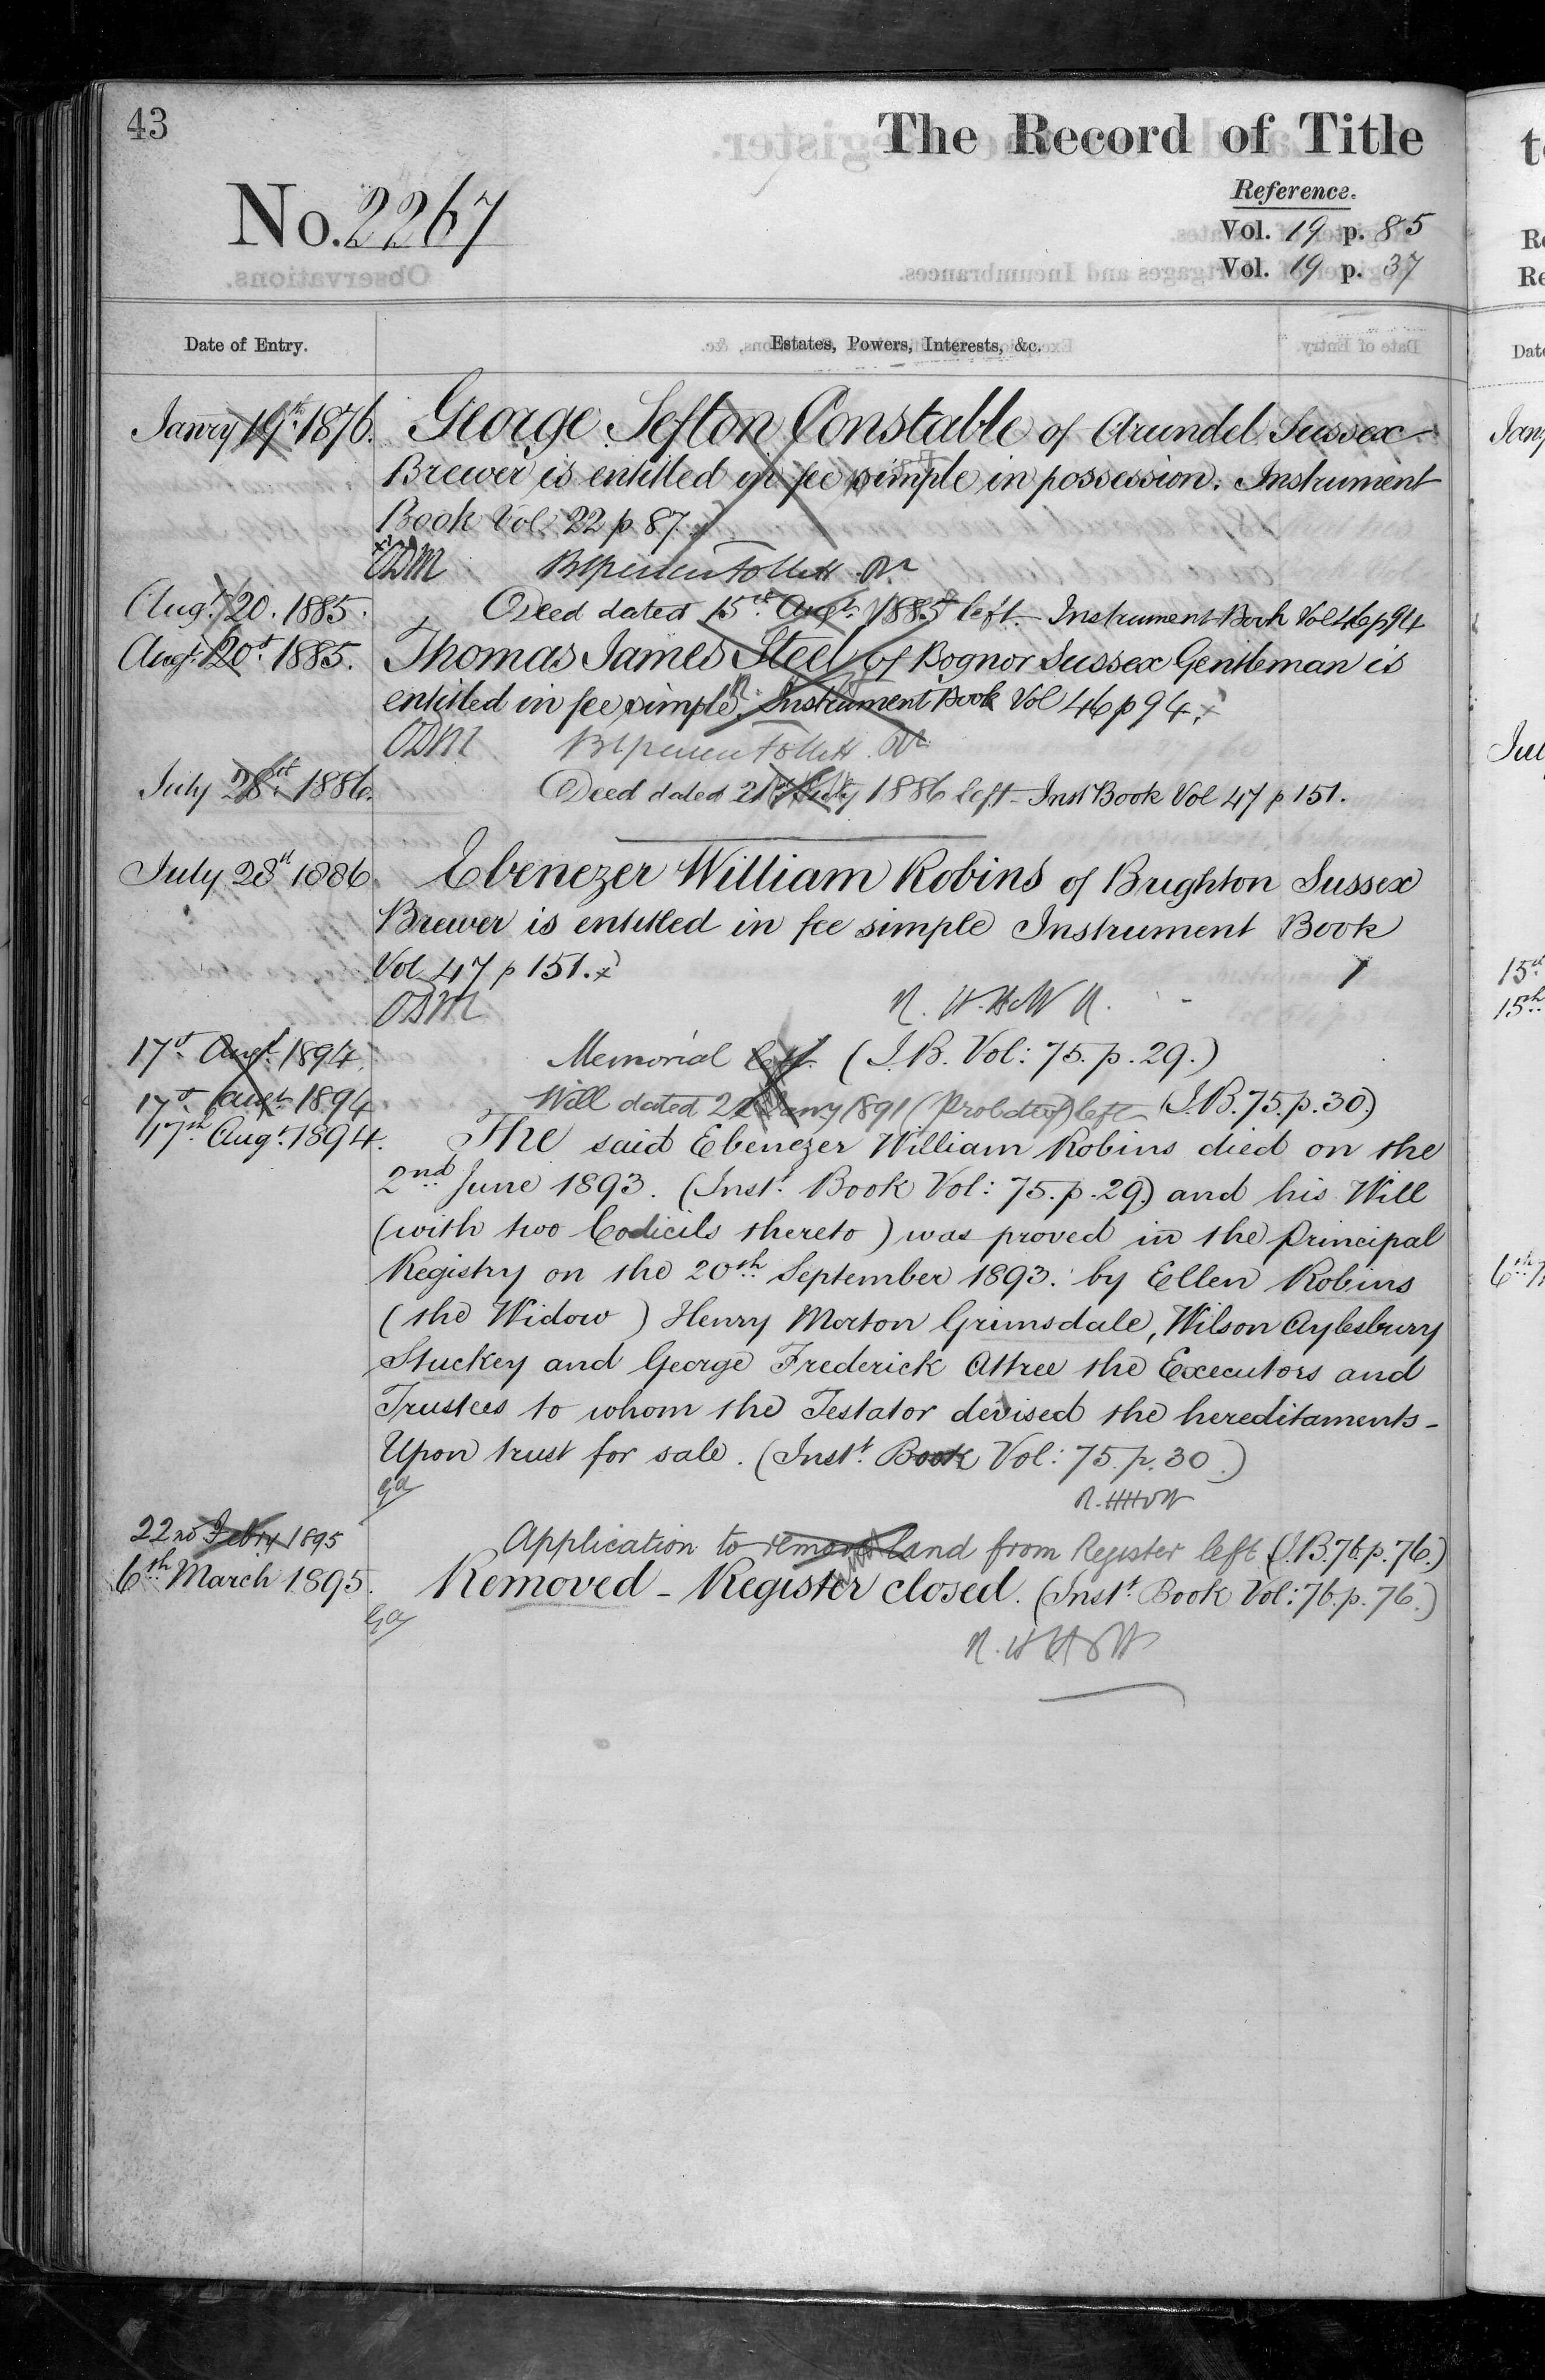 43
The Record of Title
Reference.
No. 2267
Vol. 19 p. 85
Vol. 19 p. 37
Date of Entry.
Estates, Powers, Interests, &c.
Janry 19th 1876. George Sefton Constable of Arundel Sussex
Brewer is entitled in fee simple in possession. Instrument
Book Vol 22 p 87.
ODM
Augt 20. 1885. Deed dated 15th Augt 1885 left. Instrument Book Vol 46 p 94
Augt 20t 1885. Thomas James Steel of Bognor Sussex Gentleman is
entitled in fee simple. Instrument Book Vol 46 p 94.
ODM
July 28th 1886. Deed dated 21st July 1886 left – Inst Book Vol 47 p 151.
July 28th 1886. Ebenezer William Robins of Brighton Sussex
Brewer is entitled in fee simple Instrument Book
Vol 47 p 151.
ODM
17th Augt 1894. Memorial left. (I.B. Vol: 75. p. 29.)
17th Augt 1894 Will dated 21 Jany 1891 (Probate of) left (I.B. 75. p. 30.)
17th Augt 1894. The said Ebenezer William Robins died on the
2nd June 1893. (Inst. Book Vol: 75. p. 29.) and his Will
(with two Codicils thereto) was proved in the Principal
Registry on the 20th September 1893. by Ellen Robins
(the Widow) Henry Morton Grimsdale, Wilson Aylesbury
Stuckey and George Frederick Attree the Executors and
Trustees to whom the Testator devised the hereditaments –
Upon trust for sale. (Instt. Book Vol: 75. p. 30.)
22nd Febry 1895 Application to remove Land from Register left (I.B. 76. p. 76.)
6th March 1895. Removed – Register closed. (Instt. Book Vol: 76. p. 76.)